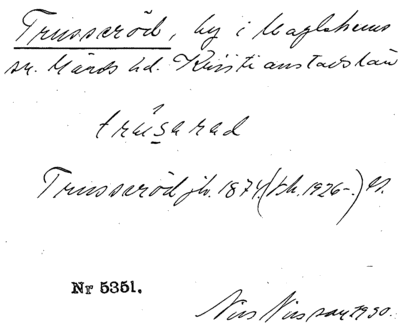 Trusseröd, by i Maglehems
sn. Gärds hd. Kristianstads län
trùsarad
Trusseröd jb. 1874 (t.k. 1926-.) N.
Nr 5351.
Nils Nilsson 1930.